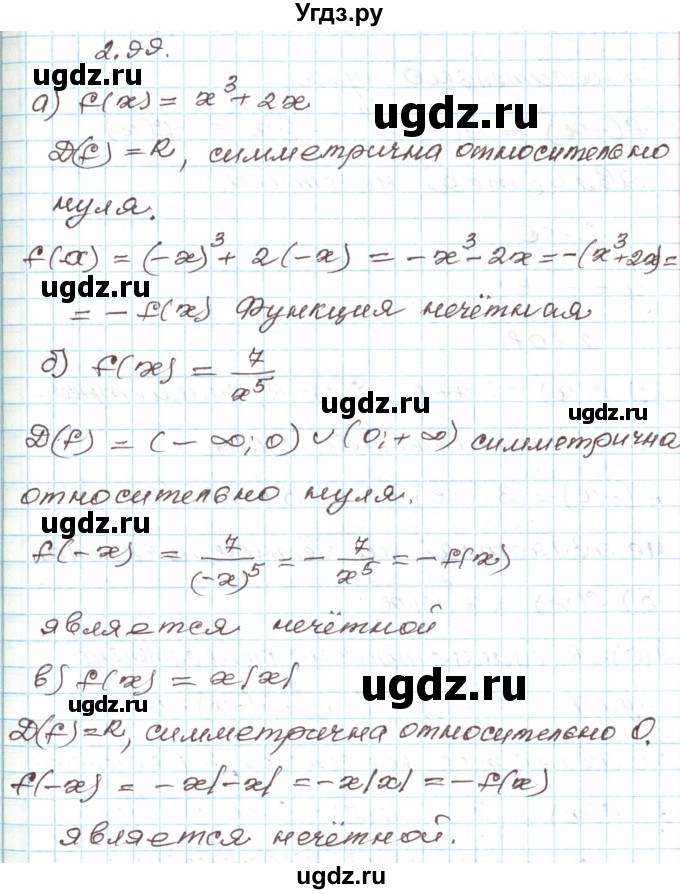 Угдз.ру
2.99.
ugdz.ru
а) f(x) = x³ + 2x
ugdz.ru
D(f) = R, симметрична относительно
нуля.
f(x) = (-x)³ + 2(-x) = -x³ - 2x = -(x³+2x) =
ugdz.ru
= -f(x) Функция нечётная
б) f(x) = 7/x⁵
ugdz.ru
ugdz.ru
D(f) = (-∞; 0) ∪ (0; +∞) симметрична
относительно нуля.
ugdz.ru
f(-x) = 7/(-x)⁵ = - 7/x⁵ = -f(x)
ugdz.ru
является нечётной
в) f(x) = x|x|
ugdz.ru
ugdz.ru
D(f)=R, симметрична относительно 0.
f(-x) = -x|-x| = -x|x| = -f(x)
ugdz.ru
является нечётной.
ugdz.ru